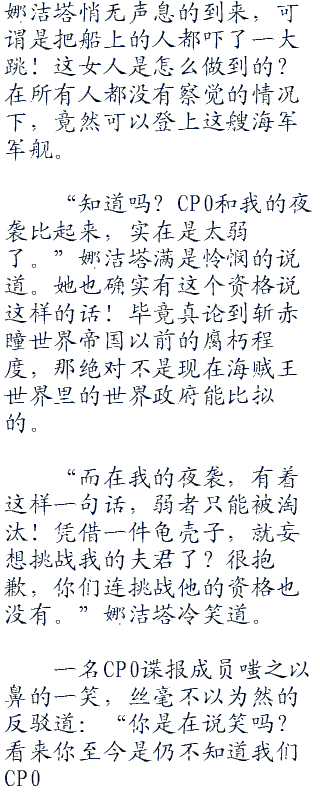 娜洁塔悄无声息的到来，可
谓是把船上的人都吓了一大
跳！这女人是怎么做到的？
在所有人都没有察觉的情况
下，竟然可以登上这艘海军
军舰。
“知道吗？CP0和我的夜
袭比起来，实在是太弱
了。”娜洁塔满是怜悯的说
道。她也确实有这个资格说
这样的话！毕竟真论到斩赤
瞳世界帝国以前的腐朽程
度，那绝对不是现在海贼王
世界里的世界政府能比拟
的。
“而在我的夜袭，有着
这样一句话，弱者只能被淘
汰！凭借一件龟壳子，就妄
想挑战我的夫君了？很抱
歉，你们连挑战他的资格也
没有。”娜洁塔冷笑道。
一名CP0谍报成员嗤之以
鼻的一笑，丝毫不以为然的
反驳道：“你是在说笑吗？
看来你至今是仍不知道我们
CP0